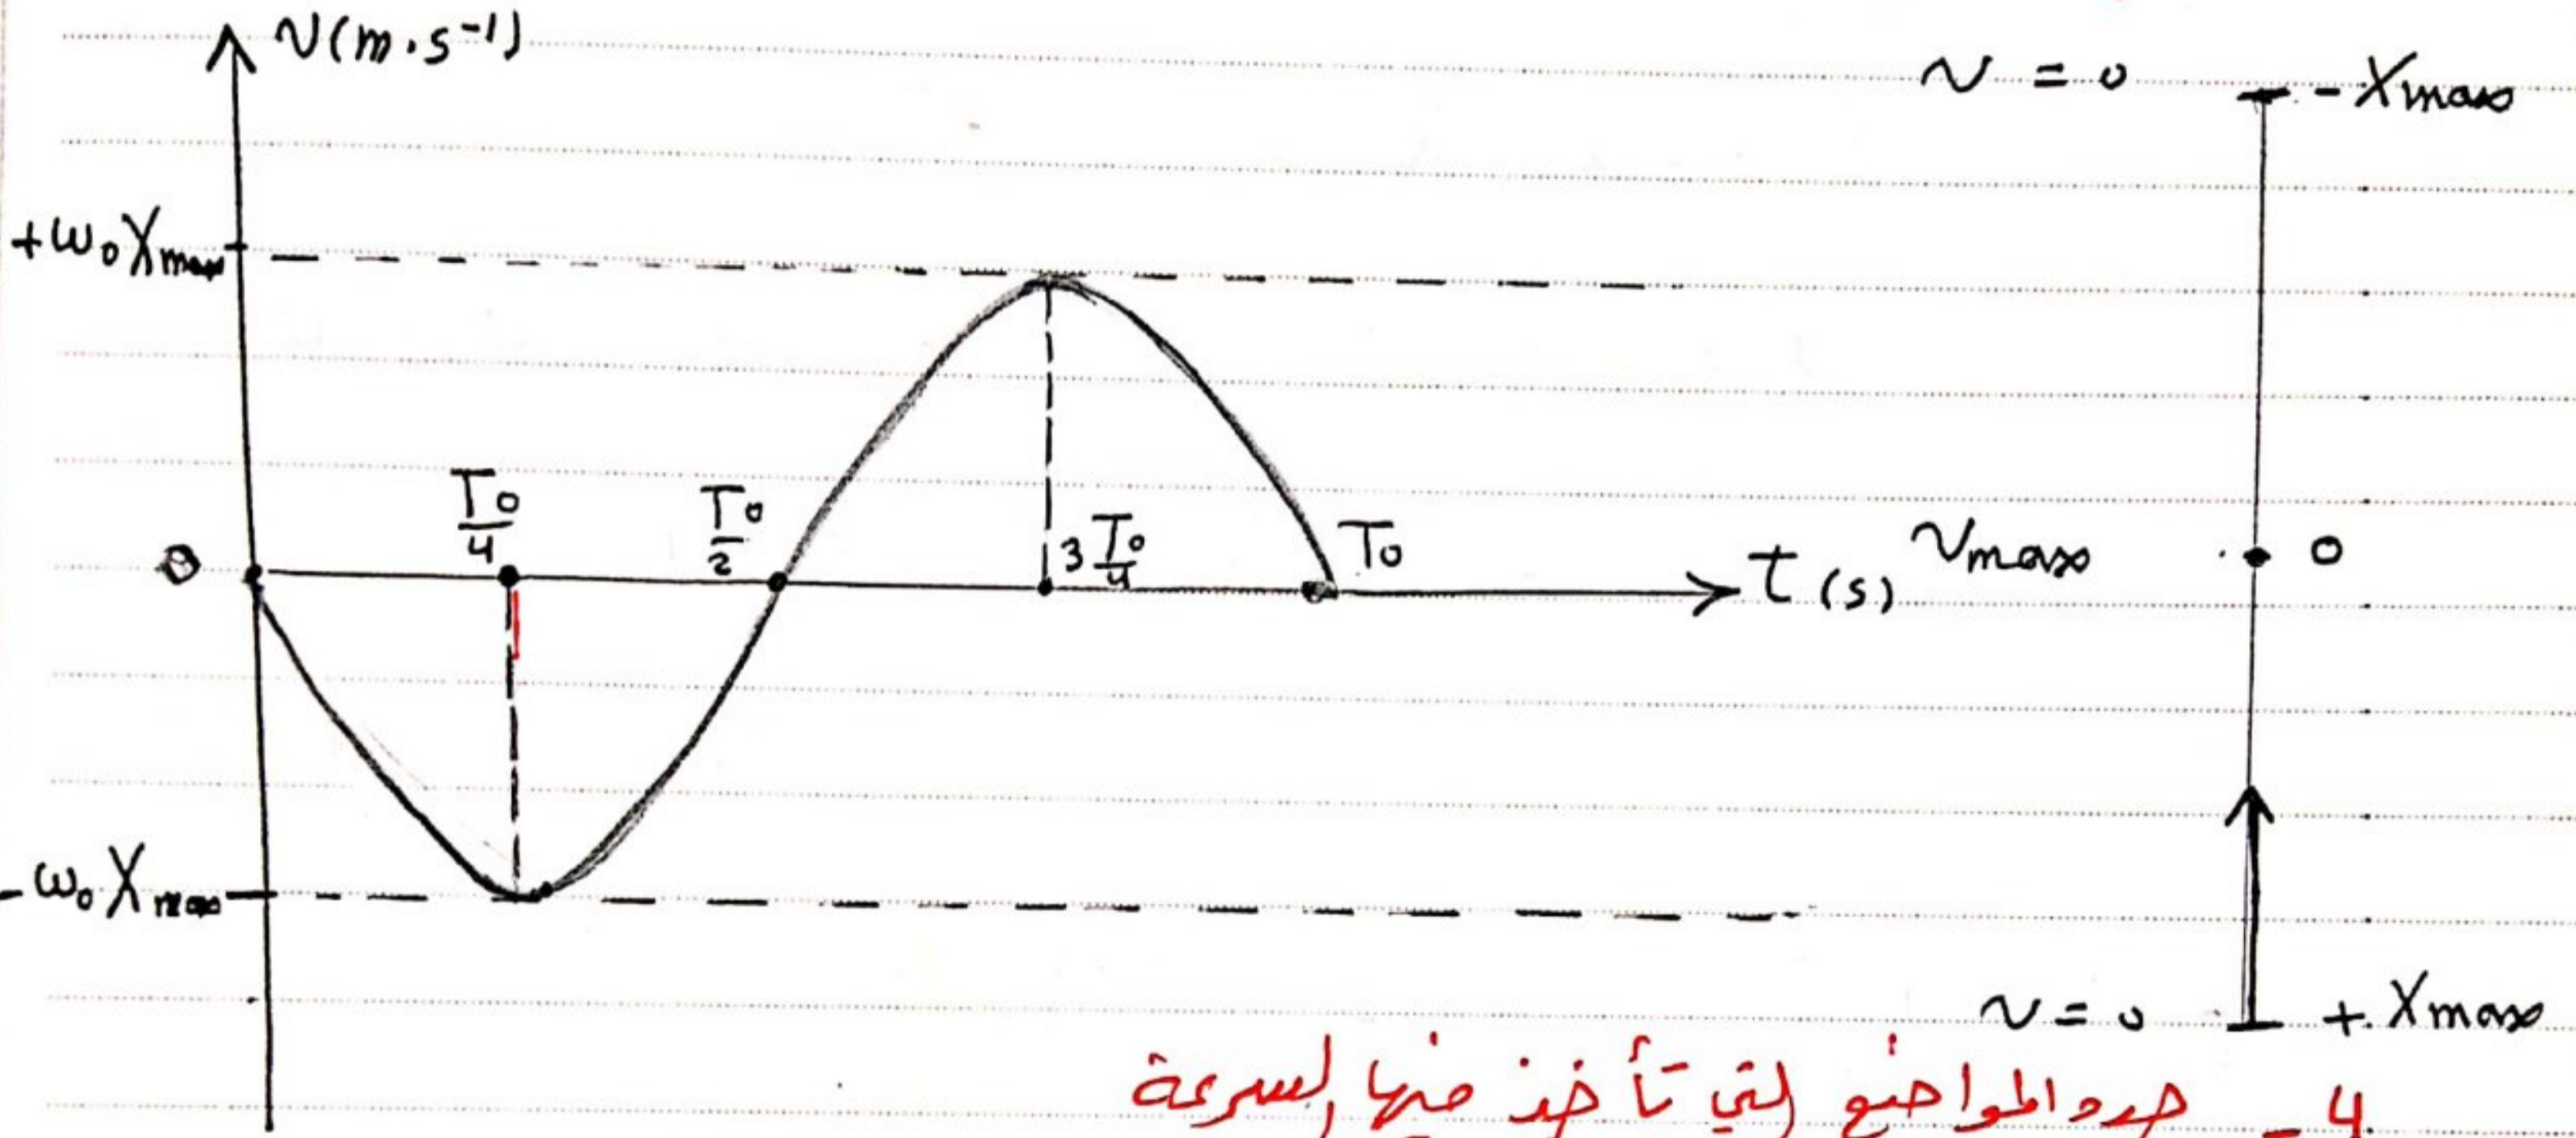 v(m.s⁻¹)
v = 0
- Xmax
+ω₀Xmax
T₀/4
T₀/2
3 T₀/4
T₀
0
t (s)
vmax
0
-ω₀Xmax
v = 0
+ Xmax
4 - حدد المواضع التي تأخذ فيها السرعة